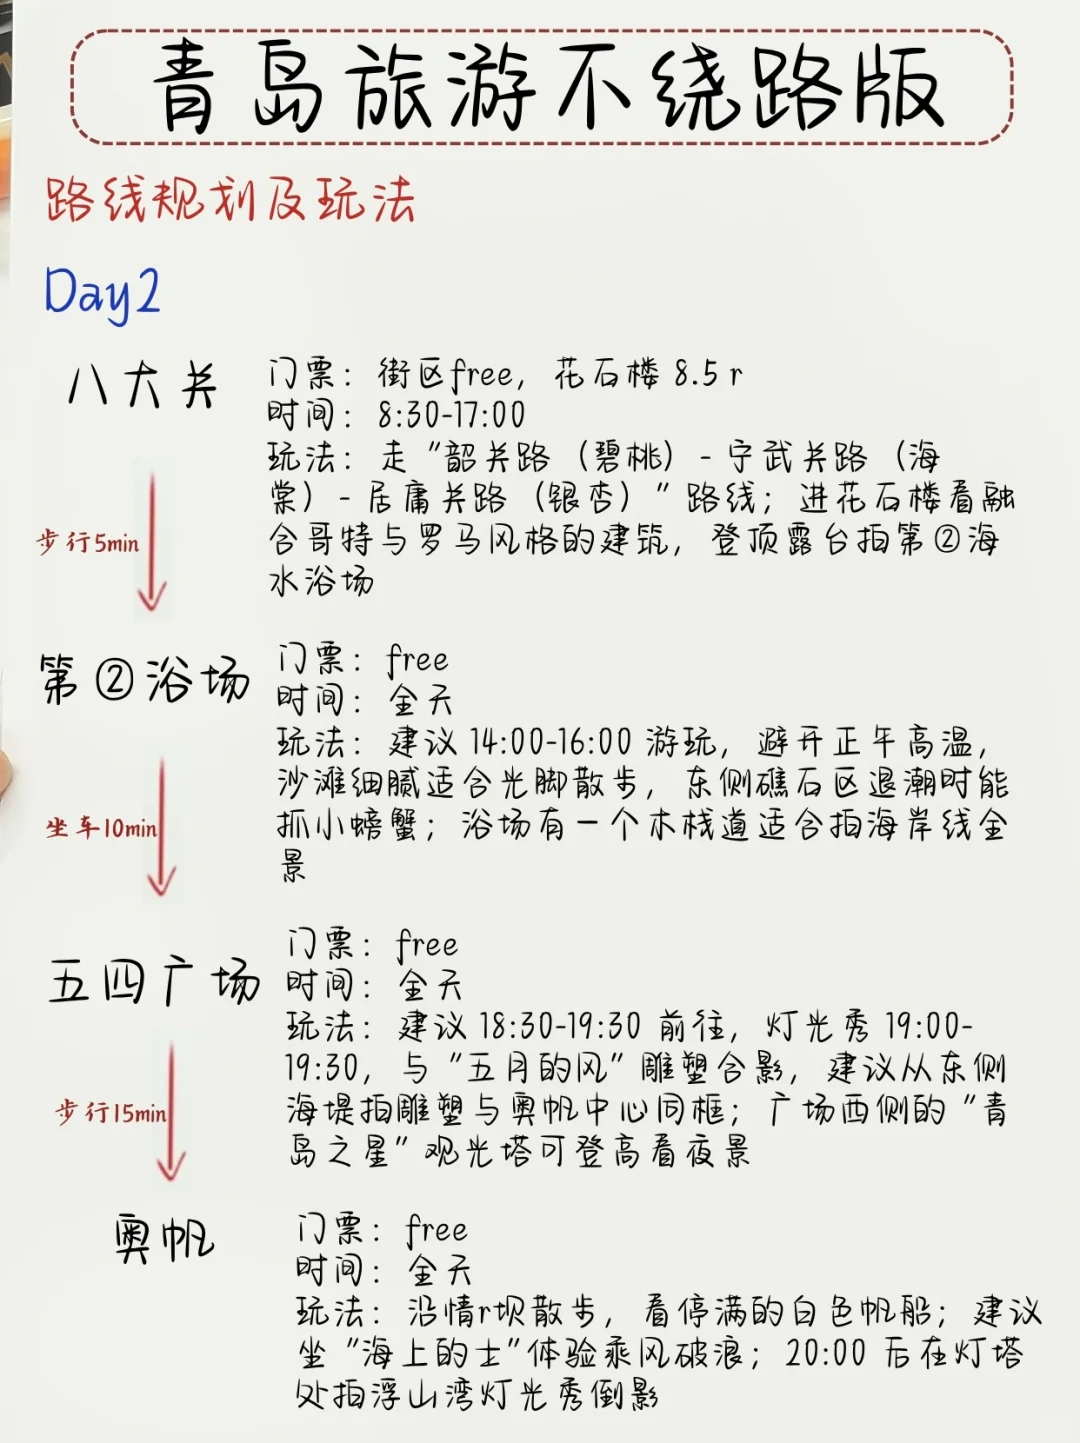 青岛旅游不绕路版
路线规划及玩法
Day2
八大关
门票：街区free，花石楼 8.5 r
时间：8:30-17:00
玩法：走“韶关路（碧桃）- 宁武关路（海
棠）- 居庸关路（银杏）”路线；进花石楼看融
合哥特与罗马风格的建筑，登顶露台拍第②海
水浴场
步行5min
第②浴场
门票：free
时间：全天
玩法：建议 14:00-16:00 游玩，避开正午高温，
沙滩细腻适合光脚散步，东侧礁石区退潮时能
抓小螃蟹；浴场有一个木栈道适合拍海岸线全
景
坐车10min
五四广场
门票：free
时间：全天
玩法：建议 18:30-19:30 前往，灯光秀 19:00-
19:30，与“五月的风”雕塑合影，建议从东侧
海堤拍雕塑与奥帆中心同框；广场西侧的“青
岛之星”观光塔可登高看夜景
步行15min
奥帆
门票：free
时间：全天
玩法：沿情r坝散步，看停满的白色帆船；建议
坐“海上的士”体验乘风破浪；20:00 后在灯塔
处拍浮山湾灯光秀倒影